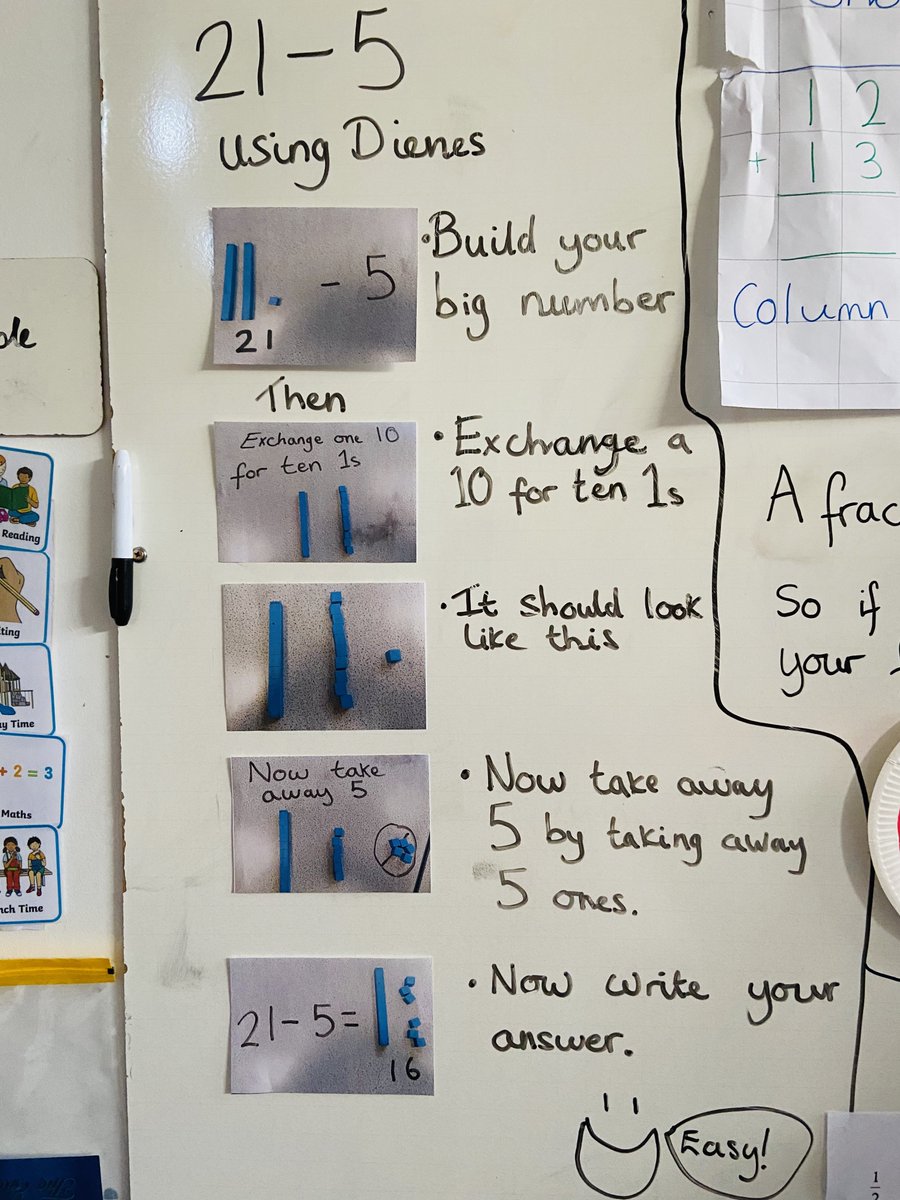 21-5
using Dienes
- 5
21
• Build your
big number
Then
Exchange one 10
for ten 1s
• Exchange a
10 for ten 1s
• It should look
like this
Now take
away 5
• Now take away
5 by taking away
5 ones.
21-5=
16
• Now write your
answer.
Easy!
Reading
+ 2 = 3
Maths
Time
1 2
+ 1 3
Column
A frac
So if
your
1
2